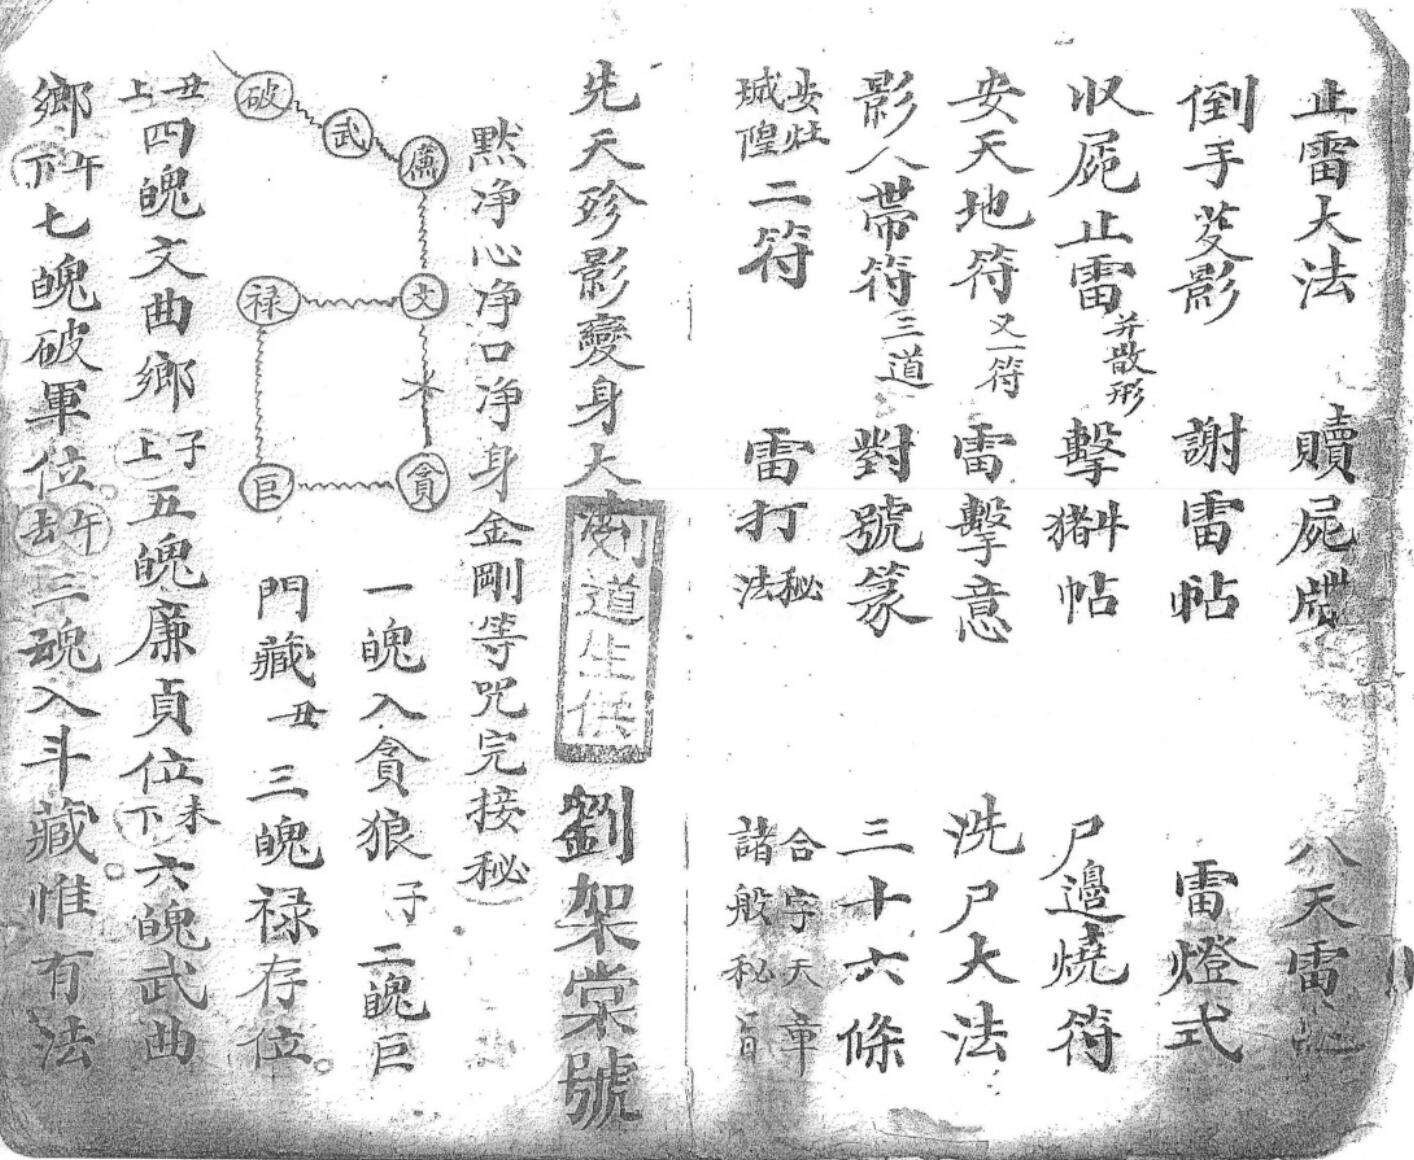 止雷大法　贖屍牒　八天雷
倒手茭影　謝雷帖　雷燈式
収屍止雷并散形　擊猪牛帖　尸邊燒符
安天地符又一符　雷擊意　洗尸大法
影人帶符三道　對號篆　三十六條
安灶城隍二符　雷打秘法　合字天章諸般秘旨
先天殄影變身大法　劉架棠號
劉道生供
默净心净口净身金剛等咒完接秘
一魄入貪狼子二魄巨
門藏丑三魄禄存位。
破
武
廉
文
禄
巨
貪
丑上四魄文曲鄉子上五魄廉貞位未下六魄武曲
鄉午下七魄破軍位。午去三魂入斗藏。惟有法